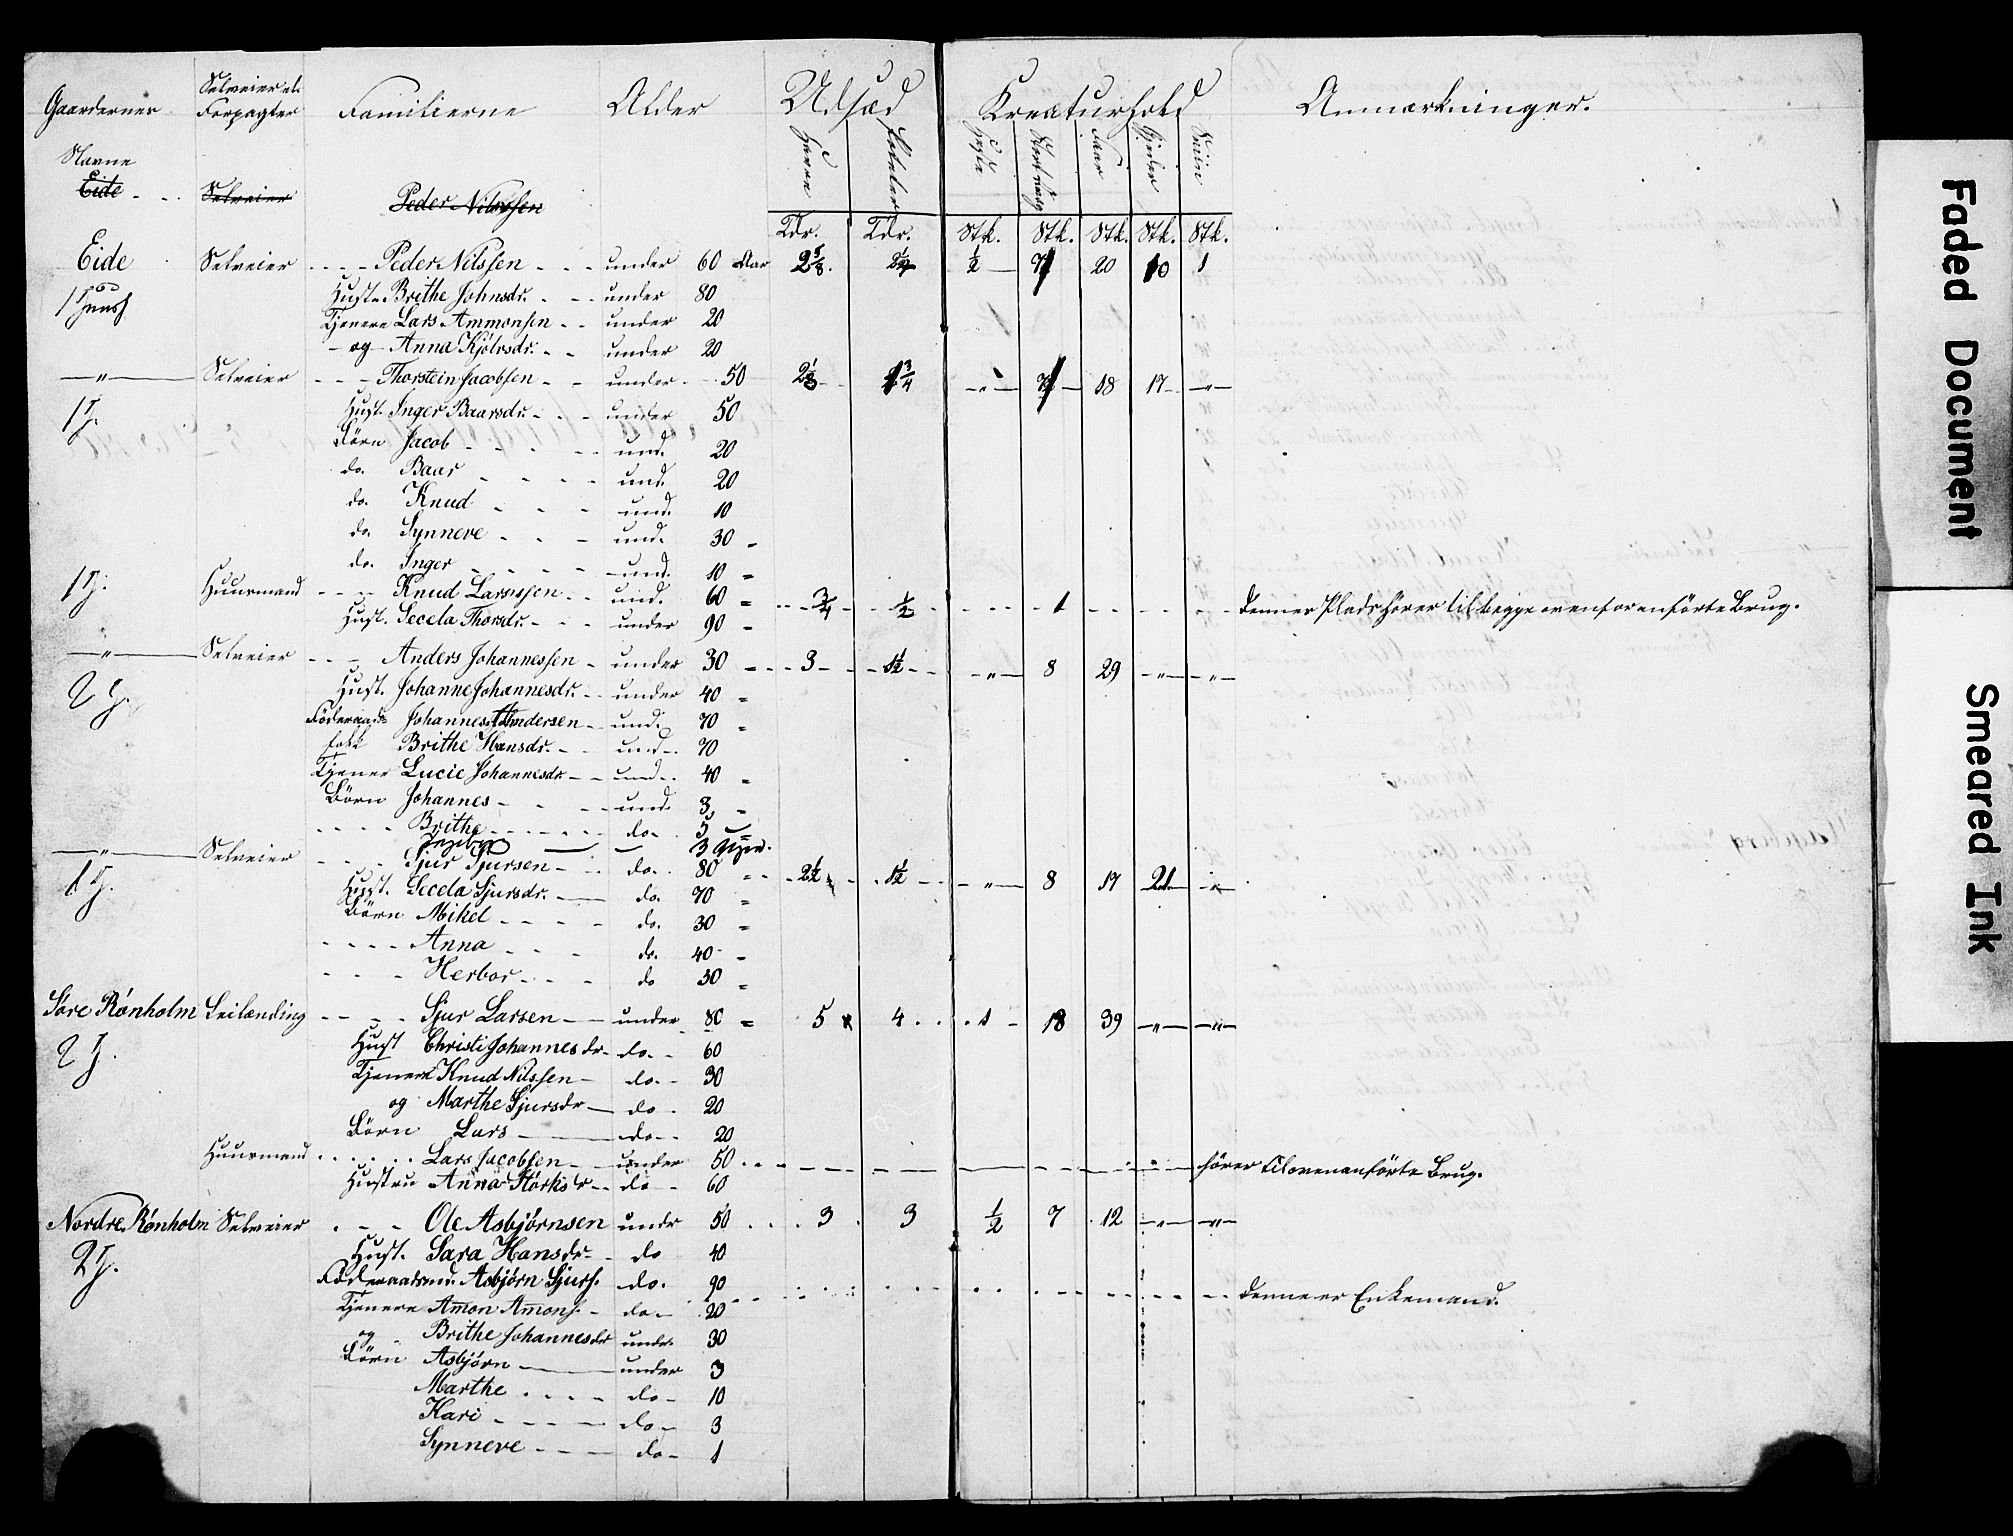 Gaardernes Selveier el. Familierne Alder Udsæd Kreaturhold Anmærkninger.
Forpagter
Navne Havre Poteter Heste Stort Qvæg Faar Gjeder Sviin
Eide - . . Selveier Peder Nilssen
Tdr. Tdr. Stk. Stk. Stk. Stk. Stk.
Eide Selveier - - - - Peder Nilssen - - - under 60 Aar 2 5/8 . 2 1/2 1/2 — 7 20 10 1
Hust. Brithe Johnsdr. - - - under 80
Tjenere Lars Ammonsen - - under 20
- og - Anna Kjölvsdr. - - under 20
— „ — Selveier - - - Thorstein Jacobsen - - under - - 50 2 1/8 - - 1 3/4 — „ — 7 — 18 17 — — „ —
1 H. Hust. Inger Baarsdr. - - under 50
Börn Jacob - - - - - und. 20
do. Baar - - - - und. 20
do. Knud - - - und. 10
do. Synneve - - - und. 30 „
do. Inger - - - - und. 10 „
1 H. Huusmand - - - Knud Larsssen - - und. 60 „ - - 3/4 - - 1/2 - - - - 1 - - - - - - Denne Plads hører til begge ovenforenførte Brug.
Hust. Secela Thorsdr. - - - under 90 „
— „ — Selveier - - - Anders Johannessen - under 30 „ - - 3 - - - 1 1/2 - - — „ — 8 29 — „ — — „ —
2 H. Hust. Johanne Johannesdr. - - under 40 „
Föderaads Johannes Andersen - und. 70 „
folk Brithe Hansdr. - - und. 70
Tjener Lucie Johannesdr. - - und. 40 „
Börn Johannes - - - - und. 3 „
- - - - Brithe - - - - - - do. 5 „
3 Uger.
— „ — Selveier - - - Sjur Sjursen - - do. . 80 - - 2 1/2 - . 1 1/2 - - — „ — 8 17 21 — — „ —
1 H. Hust. Secela Sjursdr. — do. 70 „
Börn Mikel - - - - do. 30 „
- - - - Anna - - - do. 40 - „
- - - Herbor - - - do 30 „
Søre Rønholm Leilænding - - - Sjur Larsen - - under 80 „ 5 4 . . . 1 - 18 39 — „ — — „ —
2 H. Hust Christi Johannesdr - do. - 60
Tjenere Knud Nilssen - do. - 30
og Marthe Sjursdr — do - 20
Börn Lars — do - - 20
Huusmand . . . . . . Lars Jacobsen - - under 50 . . . — — — — — — hører til ovenanførte Brug.
Hustru Anna Størksdr - - do - 60
Nordre Rønholm Selveier . - - Ole Asbjørnsen undr 50 . . . 3 . 3 1/2 7 . 12 — „ — — „ —
2 H. Hust. Sara Hansdr - do 40
Föderaadsmd. Asbjørn Sjurs. do. 90 Denne er Enkemand.
Tjenere Amon Amons. - do - 20
og - Brithe Johannesdr undr. 30
Börn Asbjørn — under 3
Marthe . . . . do - 10
Kari - - - - do - 3
Synneve - - - do - 1
Faded Document
Smeared Ink